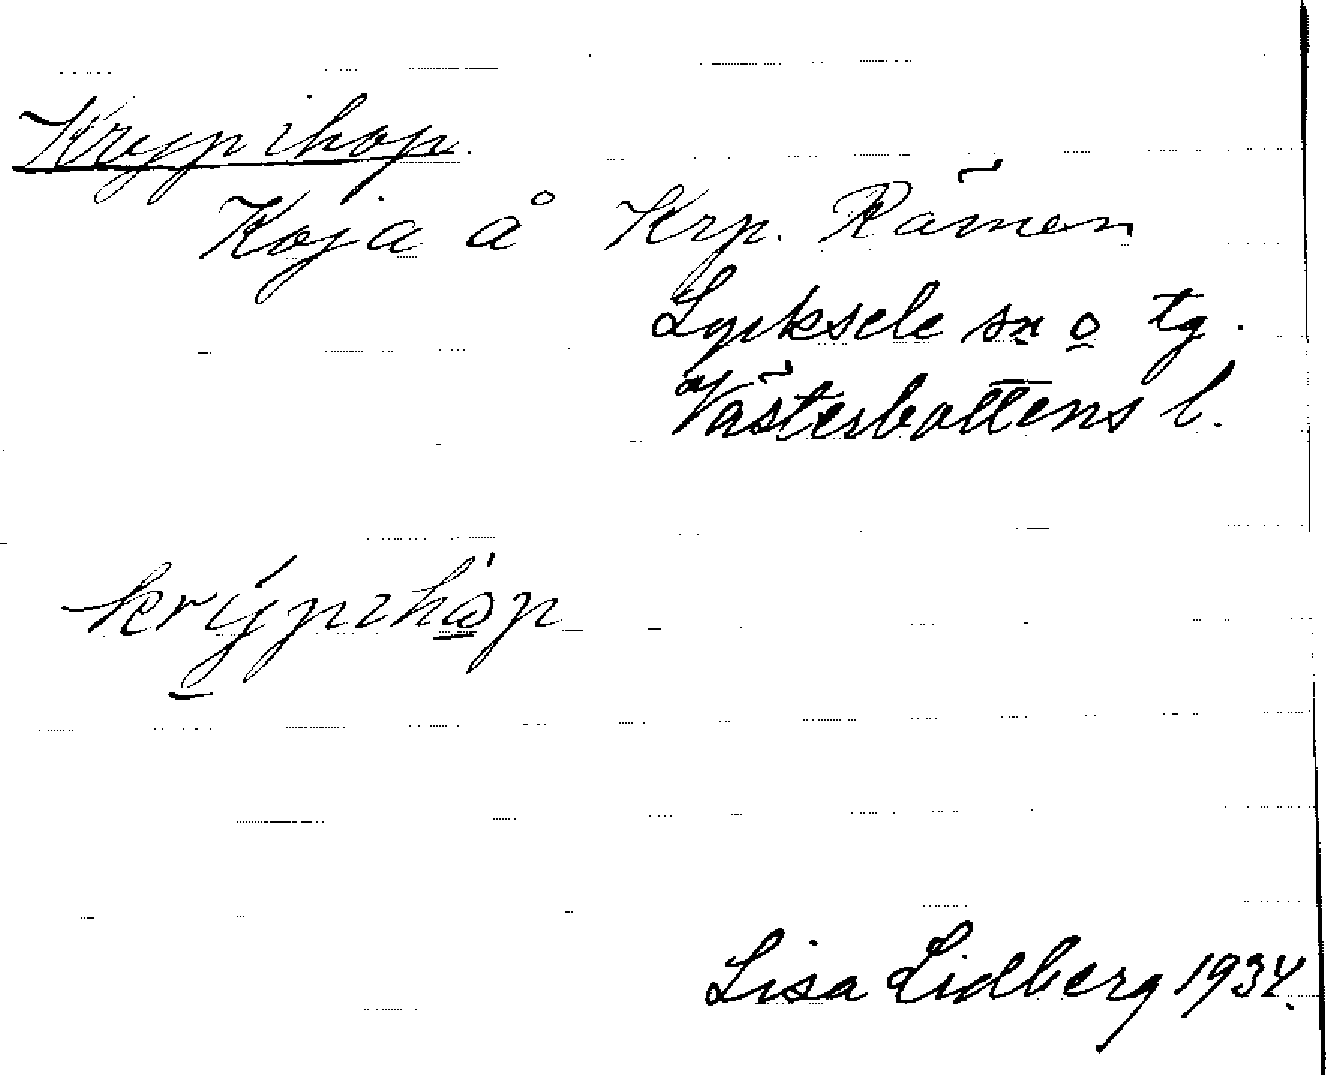 Krypihop.
Koja å Krp. Rämen
Lycksele sn o tg.
Västerbottens l.
krýpihåp
Lisa Lidberg 1934.